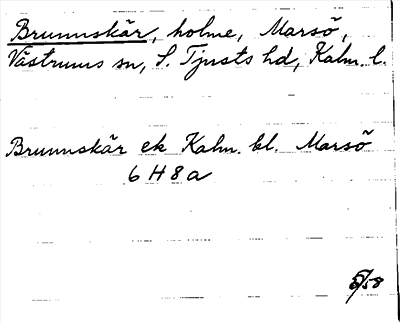 Brunnskär, holme, Marsö,
Västrums sn, S. Tjusts hd, Kalm. l.
Brunnskär ek Kalm. bl. Marsö
6 H 8 a
5/58